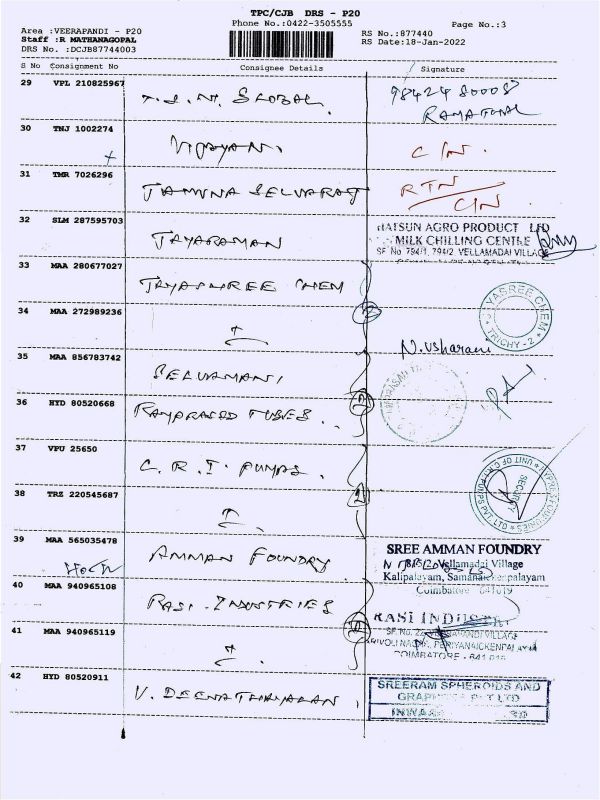 TPC/CJB DRS - P20
Phone No.:0422-3505555
Page No.:3
Area :VEERAPANDI - P20
Staff :R MATHANAGOPAL
DRS No. :DCJB87744003
RS No.:877440
RS Date:18-Jan-2022
S No Consignment No Consignee Details Signature
29 VPL 210825967
98424 80008
30 TNJ 1002274 VIJAYAN C/N.
31 TMR 7026296 JAMUNA SELVARAJ RTN
C/N
32 SLM 287595703 JAYARAMAN
HATSUN AGRO PRODUCT LTD
MILK CHILLING CENTRE
SF No 794/1, 794/2 VELLAMADAI VILLAGE
33 MAA 280677027 JAYASHREE CHEM
YASREE CHEM
TRICHY - 2
34 MAA 272989236
N. Usharani
35 MAA 856783742 SELVAMANI
36 HYD 80520668 RAMPRASAD TUBES
37 VPU 25650 C. R. I. PUMPS.
SECURITY
38 TRZ 220545687
39 MAA 565035478 AMMAN FOUNDRY
SREE AMMAN FOUNDRY
Vellamadai Village
Kalipalayam,
Coimbatore - 641019
40 MAA 940965108 RASI INDUSTRIES
RASI INDUSTRI
41 MAA 940965119
COIMBATORE - 641
42 HYD 80520911 V. DEENATHAYALAN
SREERAM SPHEROIDS AND
GRAPH PVT LTD
INWA